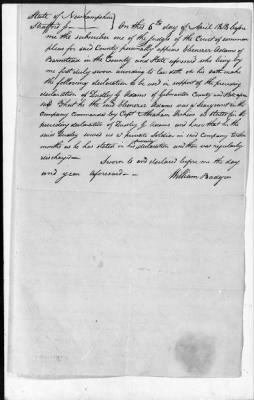 State of Newhampshire
Strafford ss — On this 6th day of April 1818 before
me the subscriber one of the Judges of the Court of common
pleas for said County personally appears Ebenezer Adams of
Barnstead in the County and State aforesaid who being by
me first duly sworn according to law doth on his oath make
the following declaration to be used in support of the preceeding
declaration of Dudley G Adams of Gilmanton County and State afore
said That he the said Ebenezer Adams was a Sargeant in the
Company Commanded by Capt Abraham as stated in the
preceeding declaration of Dudley G Adams and knows that he the
said Dudley served as a private Soldier in said Company twelve
months as he has stated in his declaration and then was regularly
discharged —
Sworn to and declared before me the day
and year aforesaid —
William Badger